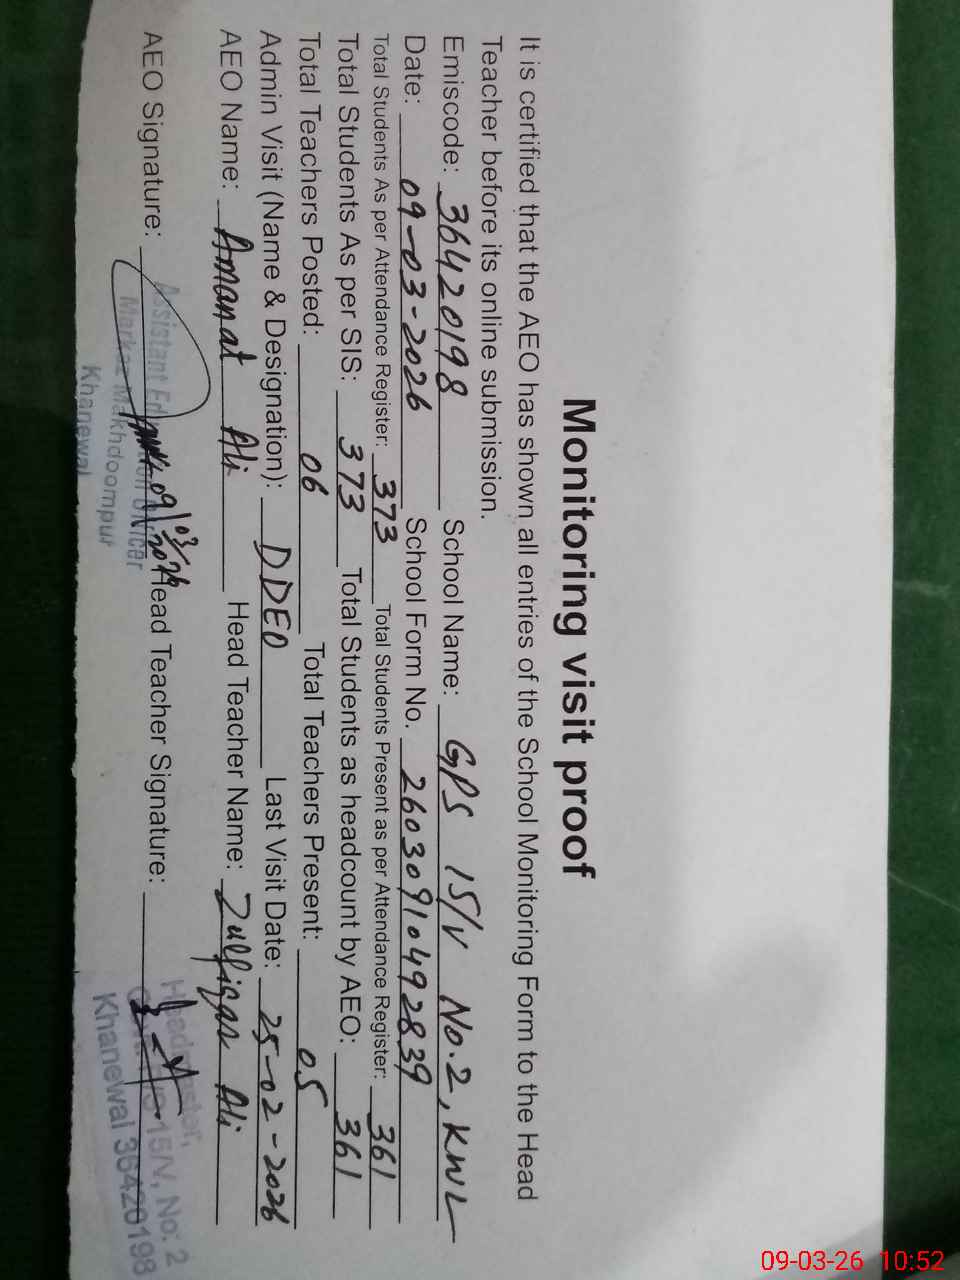 Monitoring visit proof
It is certified that the AEO has shown all entries of the School Monitoring Form to the Head
Teacher before its online submission.
Emiscode: 36420198 School Name: GPS 15/V No.2, KWL
Date: 09-03-2026 School Form No. 260309104928 39
Total Students As per Attendance Register: 373 Total Students Present as per Attendance Register: 361
Total Students As per SIS: 373 Total Students as headcount by AEO: 361
Total Teachers Posted: 06 Total Teachers Present: 05
Admin Visit (Name & Designation): DDEO Last Visit Date: 25-02-2026
AEO Name: Amanat Ali Head Teacher Name: Zulfiqar Ali
AEO Signature: 09/03/26 Head Teacher Signature:
Assistant Education Officer
Markaz Makhdoompur
Khanewal
Headmaster,
15/V, No: 2
Khanewal 36420198
09-03-26 10:52